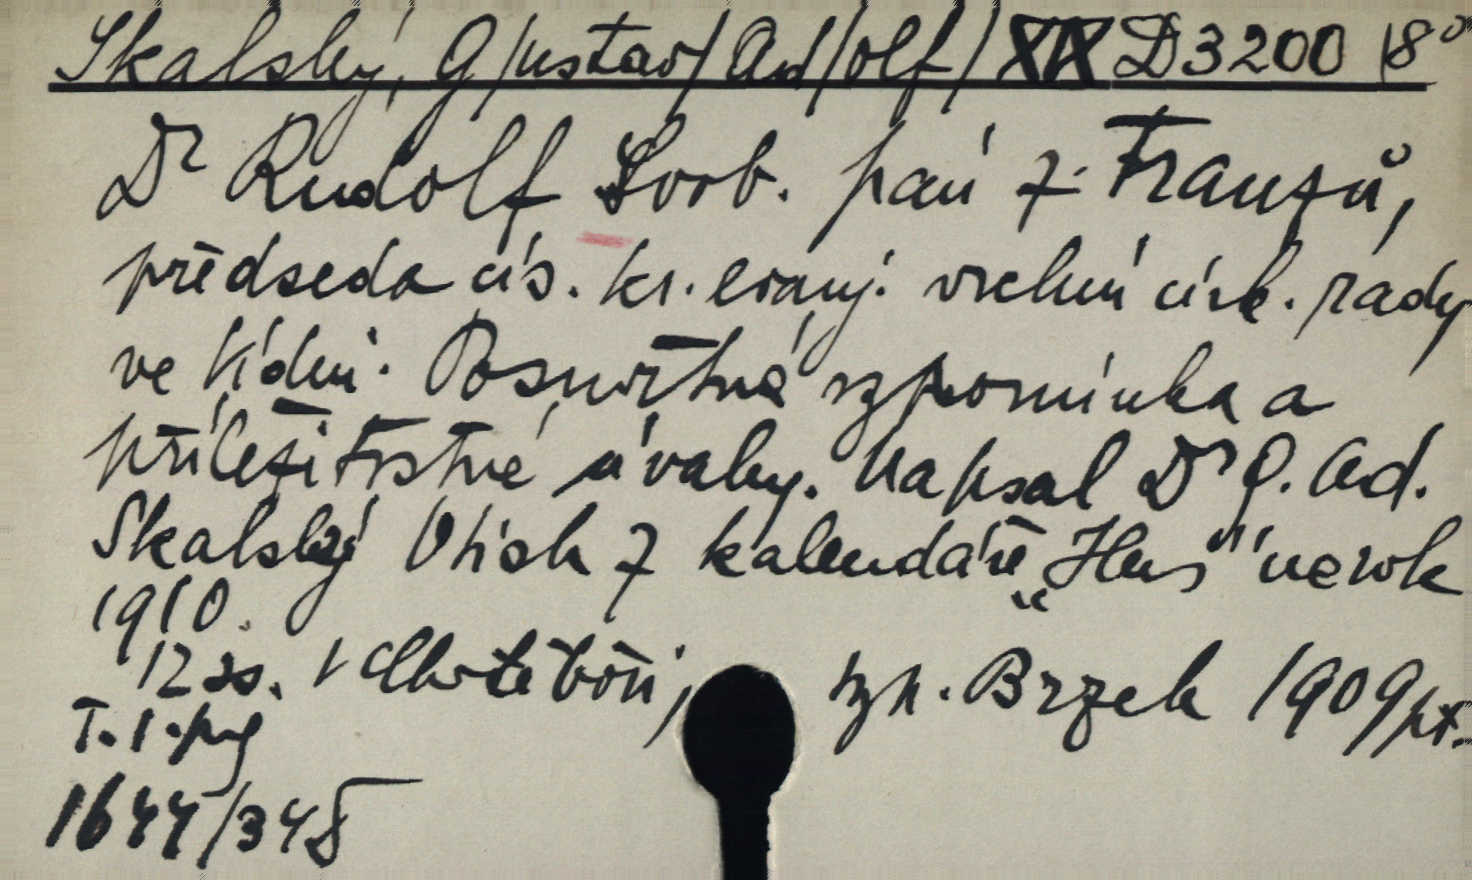 Skalský, G/ustav/ Ad/olf/ XIX D 3200 8°
Dr Rudolf Svob. pan z Franzů,
předseda cís. kr. evanj. vrchní círk. rady
ve Vídni. Posmrtná vzpomínka a
příležitostné úvahy. Napsal Dr G. Ad.
Skalský Otisk z kalendáře „Hus" na rok
1910.
12 ss. V Chotěboři, typ. Brzek 1909
T. 1. 
1644/345